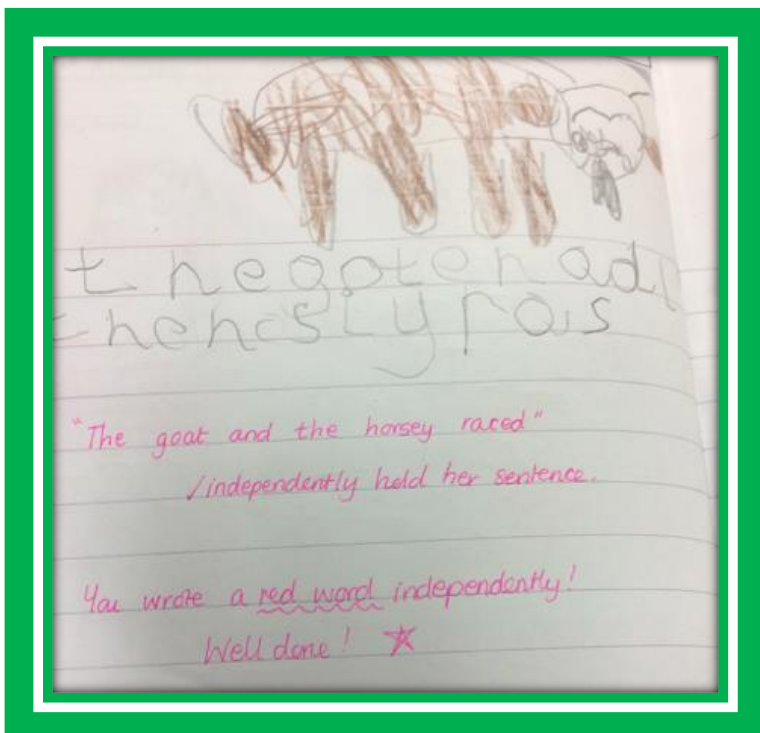 the gote nad
the hcsty rais
"The goat and the horsey raced"
✓independently held her sentence.
You wrote a red word independently!
Well done! ☆